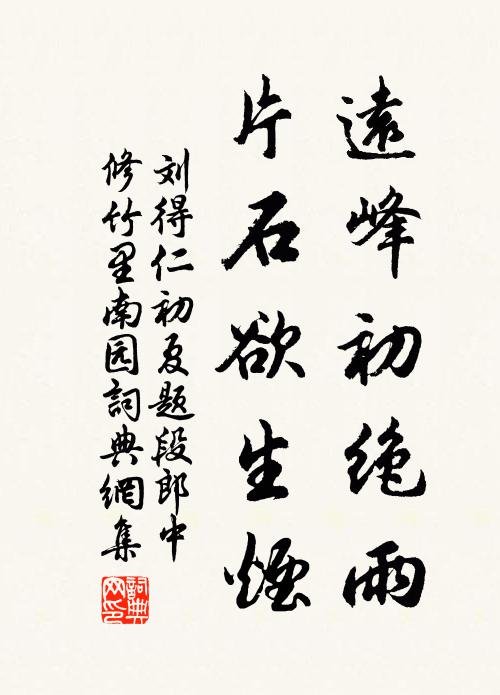 遠峰初絶雨
片石欲生煙
刘得仁初夏題段郎中
修竹里南园詞典網集
詞典网印